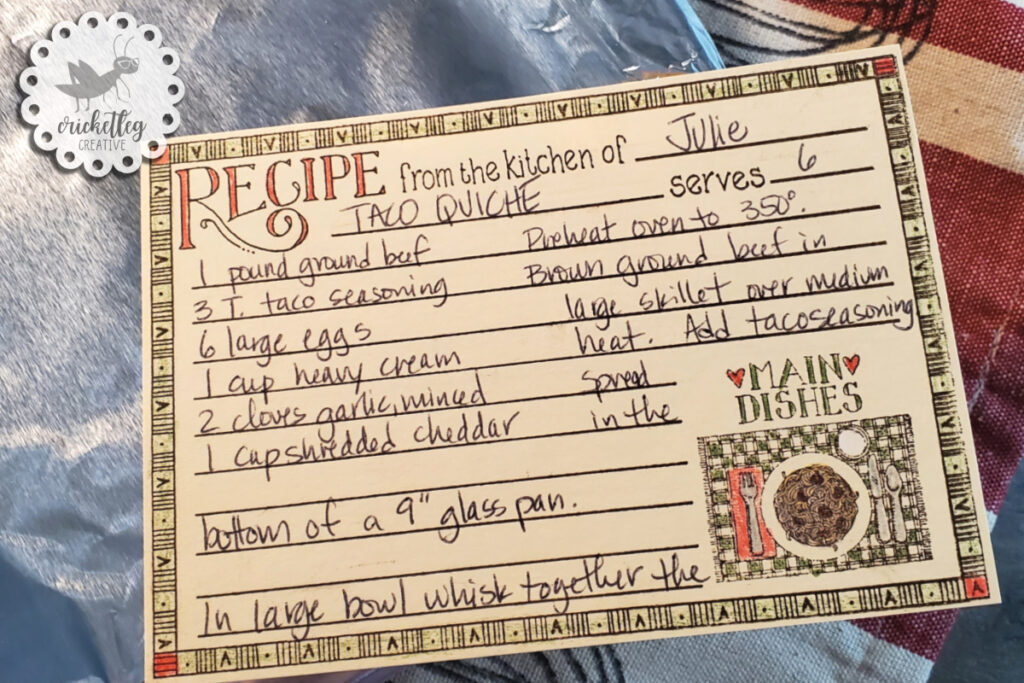 cricketleg
CREATIVE
RECIPE from the kitchen of Julie
TACO QUICHE serves 6
1 pound ground beef Preheat oven to 350°.
3 T. taco seasoning Brown ground beef in
6 large eggs large skillet over medium
1 cup heavy cream heat. Add taco seasoning
2 cloves garlic, minced spread
1 cup shredded cheddar in the
MAIN
DISHES
bottom of a 9" glass pan.
In large bowl whisk together the